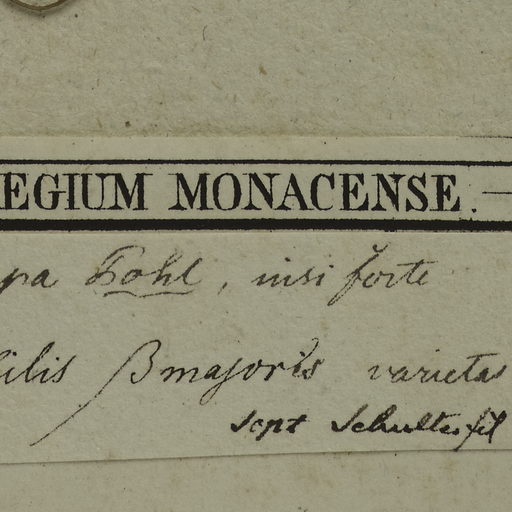 EGIUM MONACENSE.
pa Pohl, nisi forte
ilis β majoris varietas
sept Schultes fil